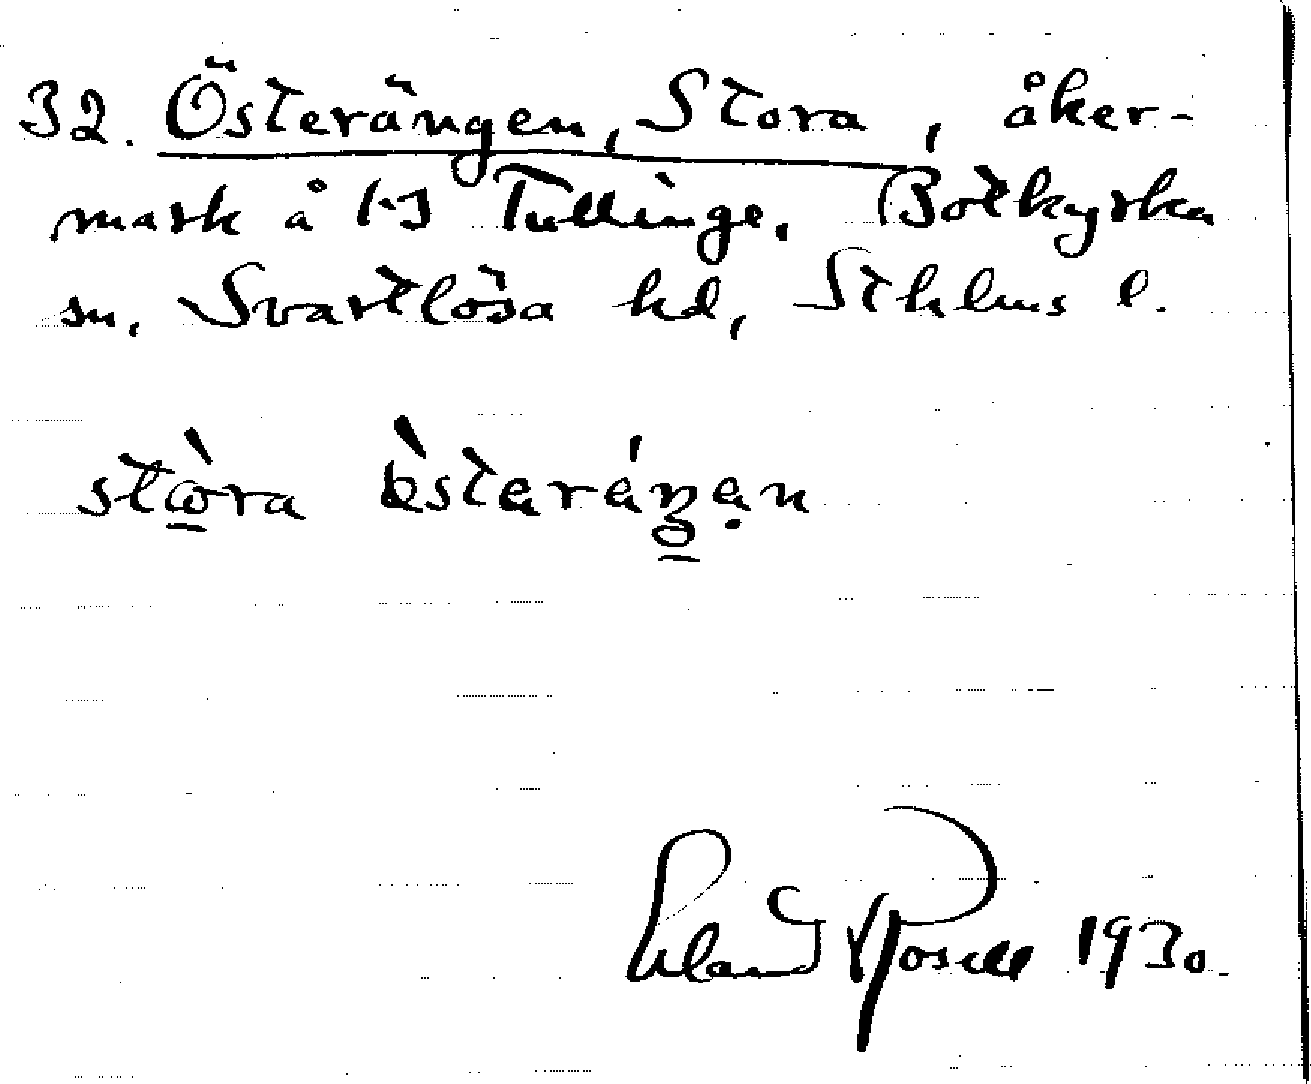 32. Österängen, Stora, åker-
mark å 1-3 Tullinge. Botkyrka
sn, Svartlösa hd, Sthlms l.
stὼ̲ra
Erland Rosell 1930.